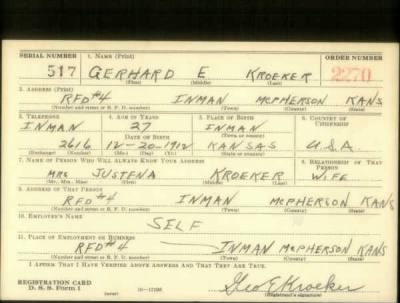 SERIAL NUMBER 1. NAME (Print) ORDER NUMBER
517 GERHARD E KROEKER 2270
(First) (Middle) (Last)
2. ADDRESS (Print)
RFD#4 INMAN McPHERSON KANS
(Number and street or R. F. D. number) (Town) (County) (State)
3. TELEPHONE 4. AGE IN YEARS 5. PLACE OF BIRTH 6. COUNTRY OF CITIZENSHIP
INMAN 27 INMAN
DATE OF BIRTH (Town or county)
2616 12-20-1912 KANSAS U.S.A.
(Exchange) (Number) (Mo.) (Day) (Yr.) (State or country)
7. NAME OF PERSON WHO WILL ALWAYS KNOW YOUR ADDRESS 8. RELATIONSHIP OF THAT PERSON
MRS JUSTENA KROEKER WIFE
(Mr., Mrs., Miss) (First) (Middle) (Last)
9. ADDRESS OF THAT PERSON
RFD #4 INMAN McPHERSON KANS
(Number and street or R. F. D. number) (Town) (County) (State)
10. EMPLOYER'S NAME
SELF
11. PLACE OF EMPLOYMENT OR BUSINESS
RFD#4 INMAN McPHERSON KANS
(Number and street or R. F. D. number) (Town) (County) (State)
I AFFIRM THAT I HAVE VERIFIED ABOVE ANSWERS AND THAT THEY ARE TRUE.
REGISTRATION CARD
D. S. S. Form 1 (over) 16-17105 Geo E Kroeker
(Registrant's signature)